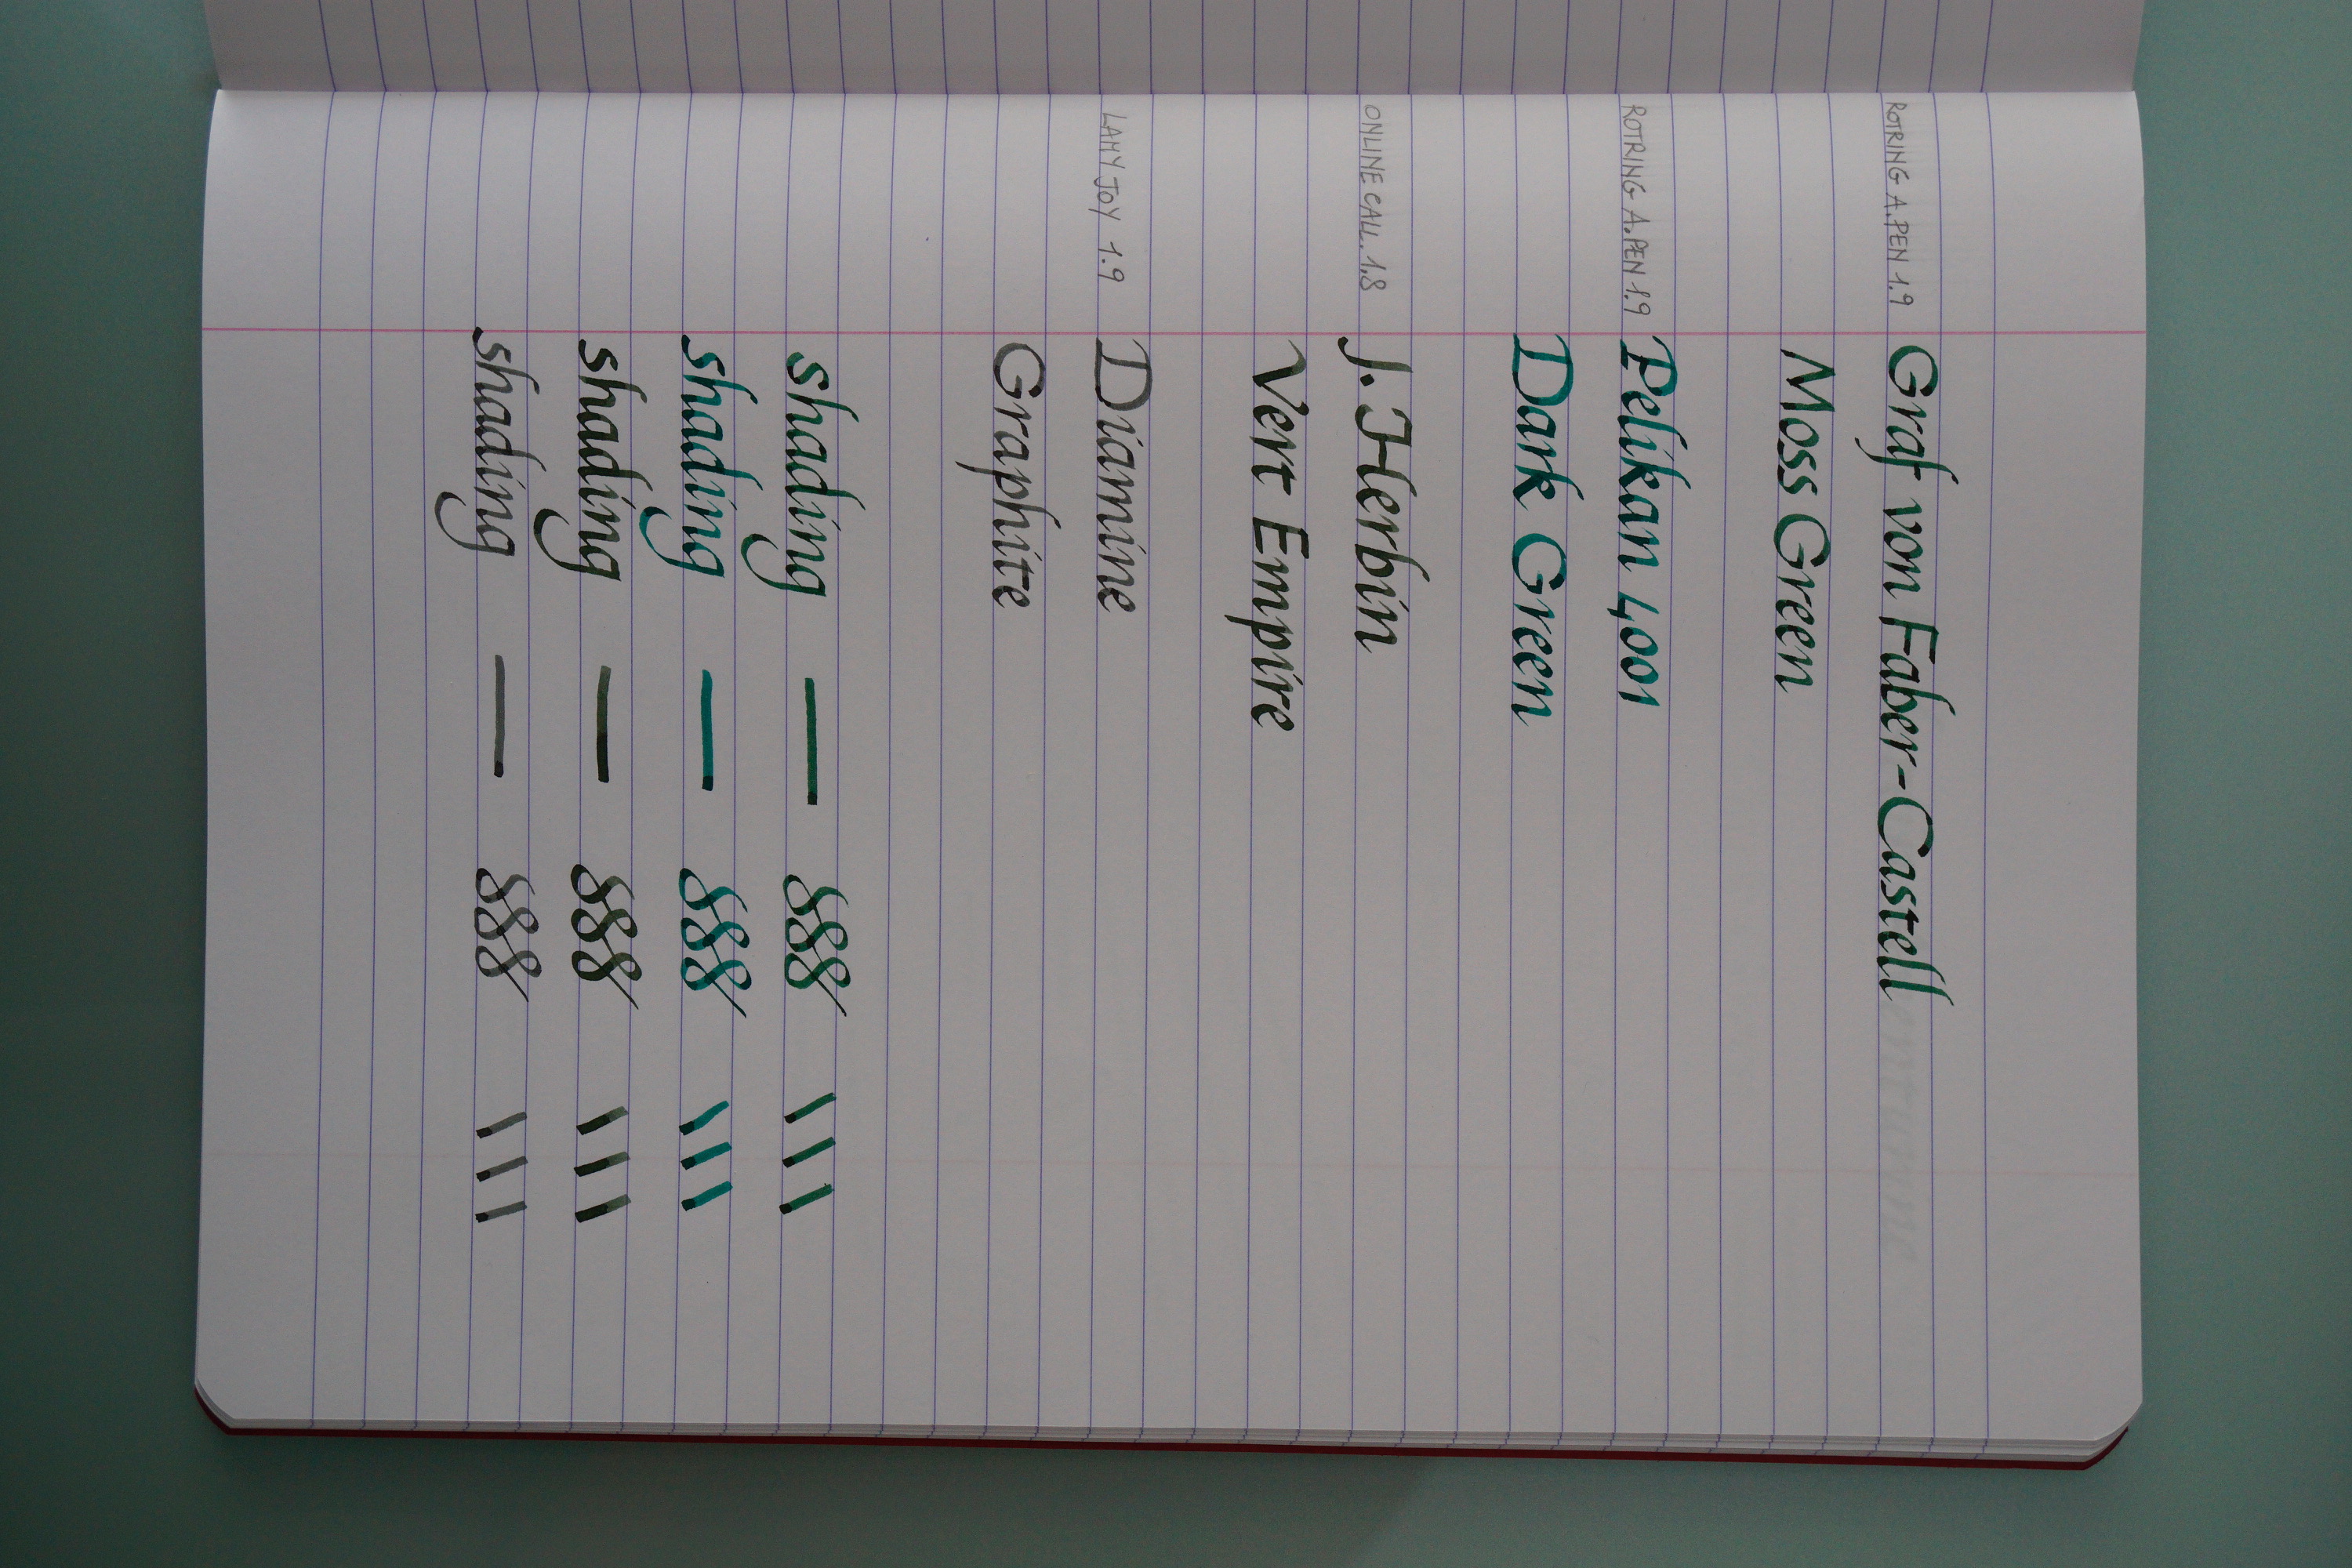 ROTRING A.PEN 1.9 Graf von Faber-Castell
Moss Green
ROTRING A.PEN 1.9 Pelikan 4001
Dark Green
ONLINE CALL. 1.8 J. Herbin
Vert Empire
LAMY JOY 1.9 Diamine
Graphite
shading
shading
shading
shading